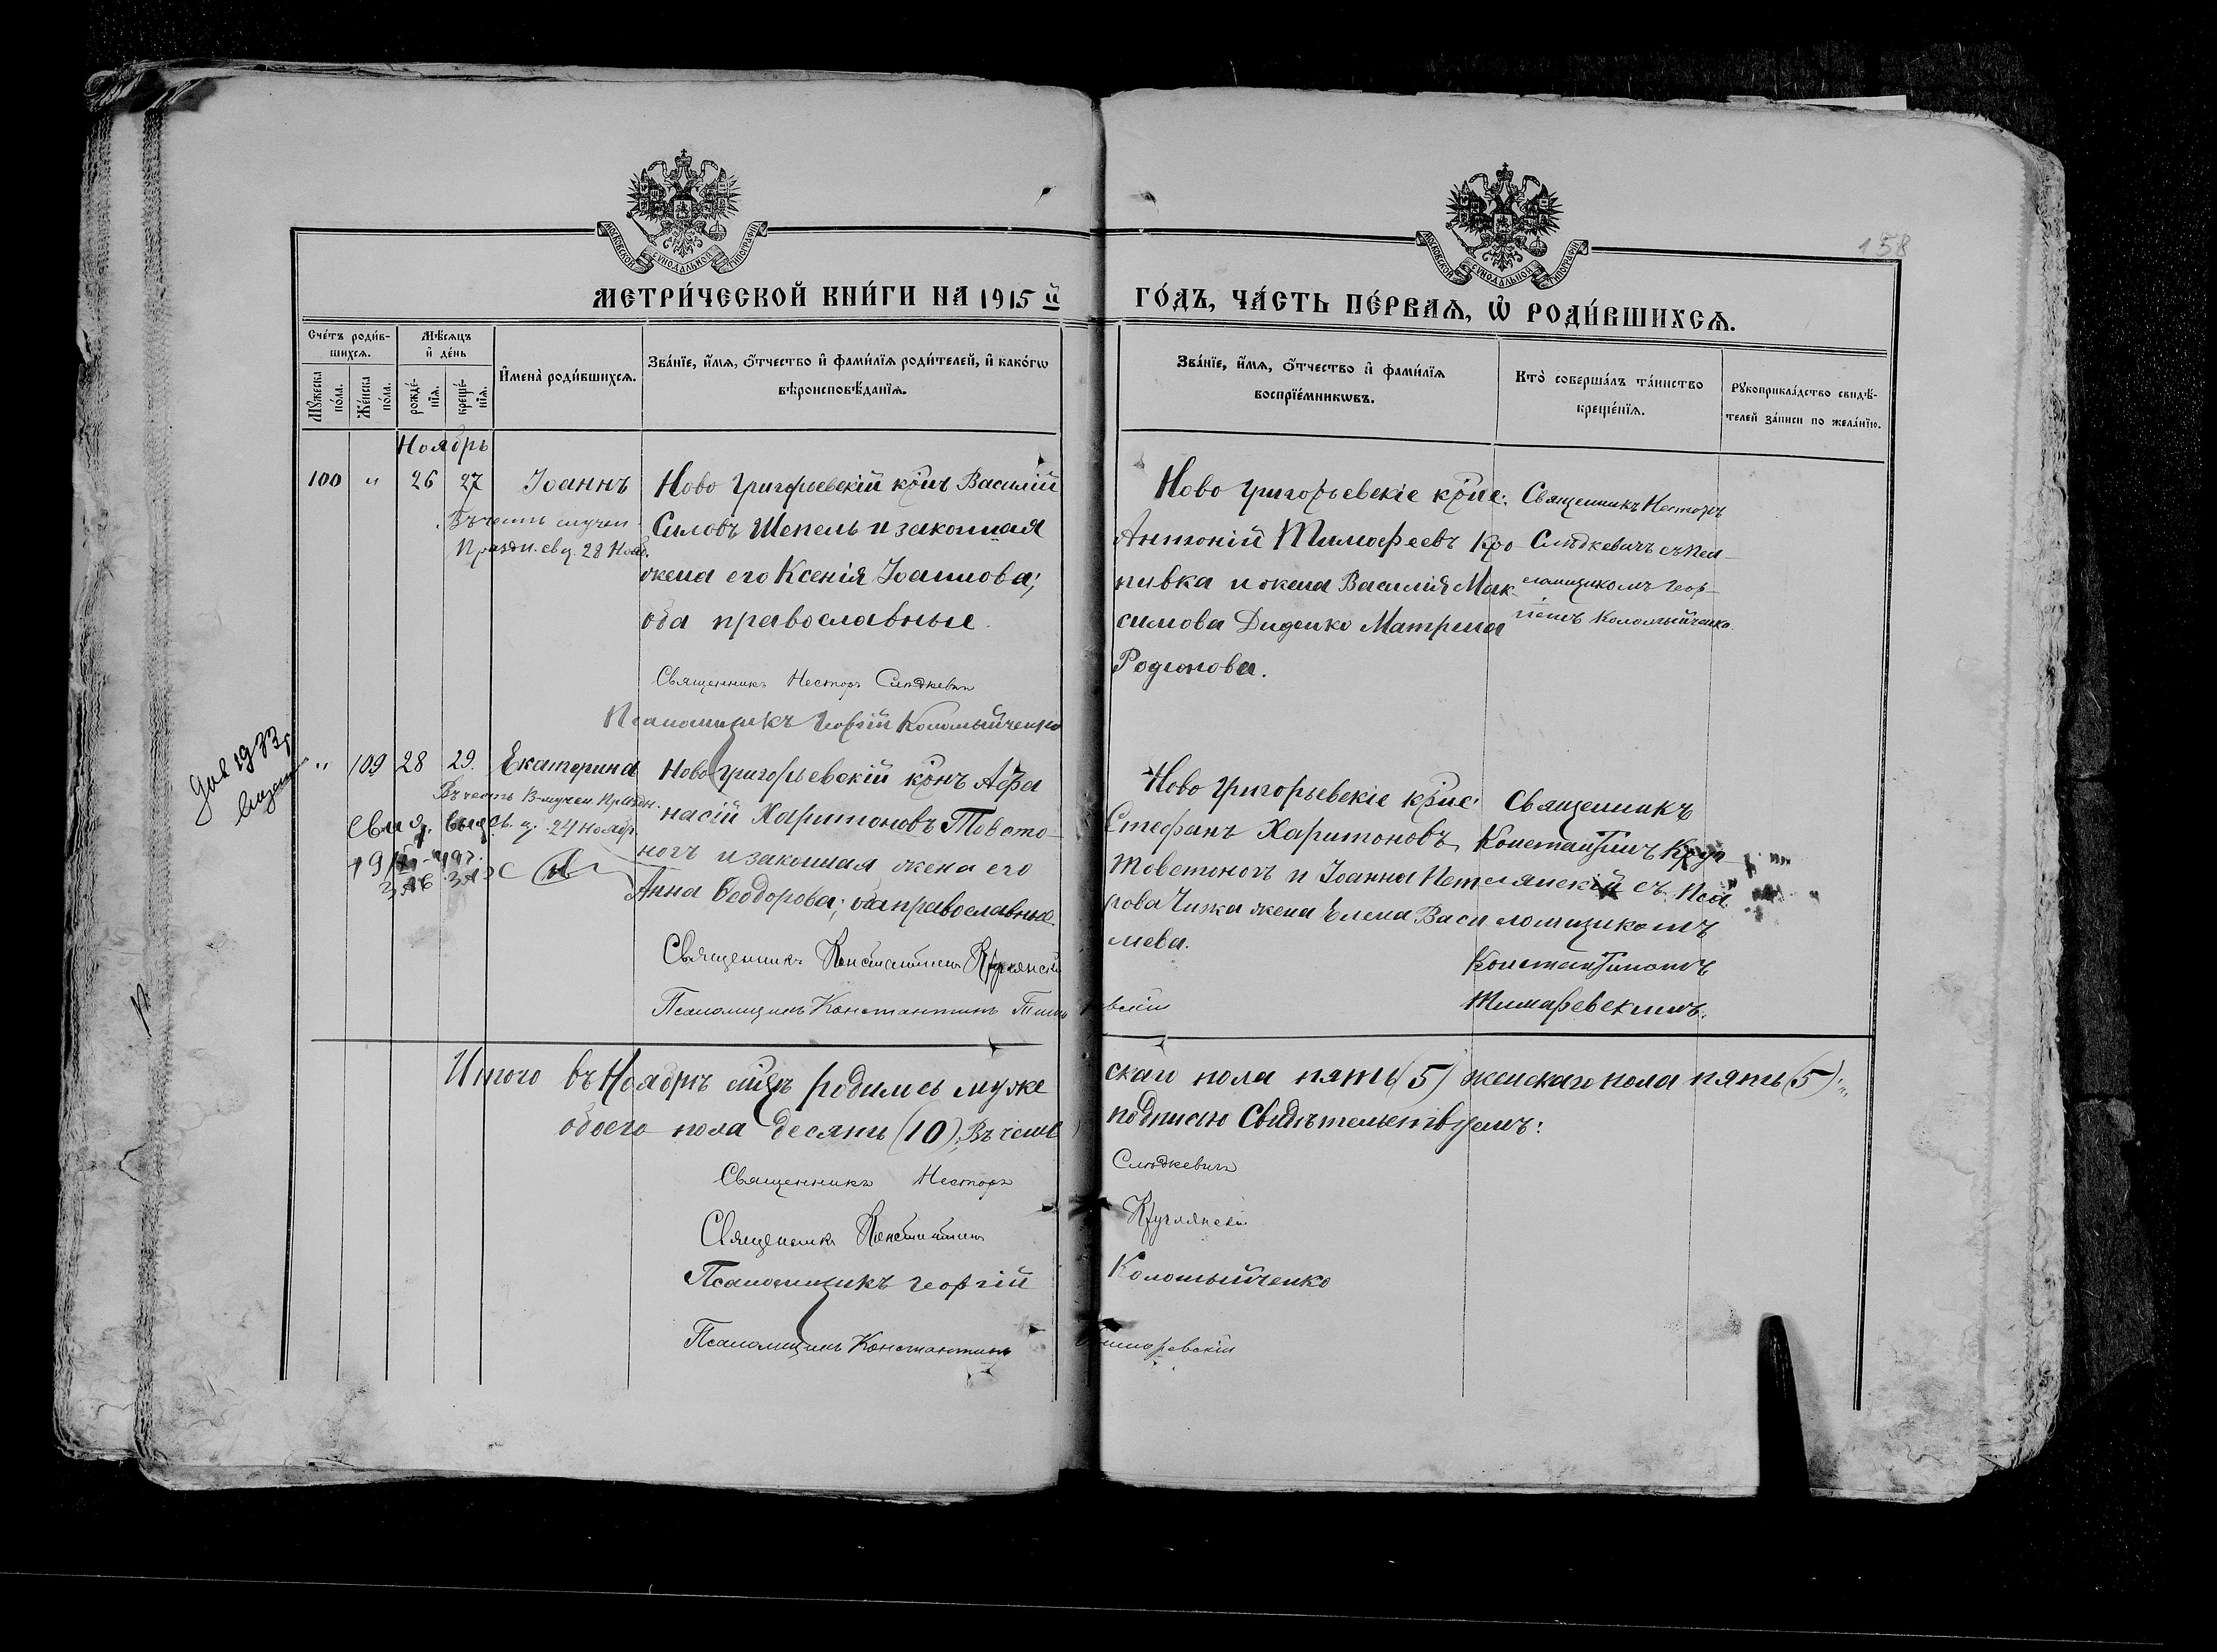 158
МОСКОВСКОЙ СѴНОДАЛЬНОЙ ТИПОГРАФІИ
МОСКОВСКОЙ СѴНОДАЛЬНОЙ ТИПОГРАФІИ
МЕТРИ́ЧЕСКОЙ КНИ́ГИ НА 1915 й
ГО́ДЪ, ЧА́СТЬ ПЕ́РВАѦ, Ѡ РОДИ́ВШИХСѦ.
Сче́тъ роди́в-
шихсѧ.
Мꙋ́жеска
по́ла.
Же́нска
по́ла.
Мѣ́сѧцъ
и де́нь
рожде́-
нїѧ.
креще́-
нїѧ.
И҆мена̀ роди́вшихсѧ.
Зва́нїе, и҆́мѧ, ѻ҆́тчество и҆ фами́лїѧ роди́телей, и҆ како́гѡ
вѣроисповѣ́данїѧ.
Зва́нїе, и҆́мѧ, ѻ҆́тчество и҆ фами́лїѧ
воспрїе́мникѡвъ.
Кто̀ соверша́лъ та́инство
креще́нїѧ.
Рꙋкоприкла́дство свидѣ́-
телей за́писи по жела́нїю.
Ноябрь
100 " 26 27 Іоаннъ
Въ честь
28 Нояб.
Ново Григорьевскій крнъ Василій
Силовъ Шепель и законная
жена его Ксенія Іоаннова;
оба православные.
Священникъ Несторъ Слюдкевичъ
Псаломщикъ Георгій Коломыйченко
Ново Григорьевскіе крне:
Антоній Тимофеевъ Кро-
пивка и жена Василія Мак-
симова Диденко Матрена
Родионова.
Священникъ Несторъ
Слюдкевичъ съ Пса-
ломщикомъ Геор-
гіемъ Коломыйченко.
" 109 28 29. Екатерина
Въ честь В-мучен. Праздн.
24 Ноябр.
1933
Ново Григорьевскій крнъ Афа
насій Харитоновъ Товсто-
ногъ и законная жена его
Анна Ѳеодорова; оба православные.
Священникъ Константинъ Круглянскій
Псаломщикъ Константинъ
Ново Григорьевскіе крне:
Стефанъ Харитоновъ
Товстоногъ и Іоанна Пет
рова Чижа жена Елена Васи
лиева.
Священникъ
Константинъ Круг-
лянскій съ Пса
ломщикомъ
Константиномъ
Тиморевскимъ.
Итого въ Ноябрѣ мцѣ родилось муже
скаго пола пять (5) женскаго пола пять (5);
обоего пола десять (10); Въ чемъ
подписью Свидѣтельствуемъ:
Священникъ Несторъ Слюдкевичъ
Священникъ Константинъ Круглянскій
Псаломщикъ Георгій Коломыйченко
Псаломщикъ Константинъ Тиморевскій